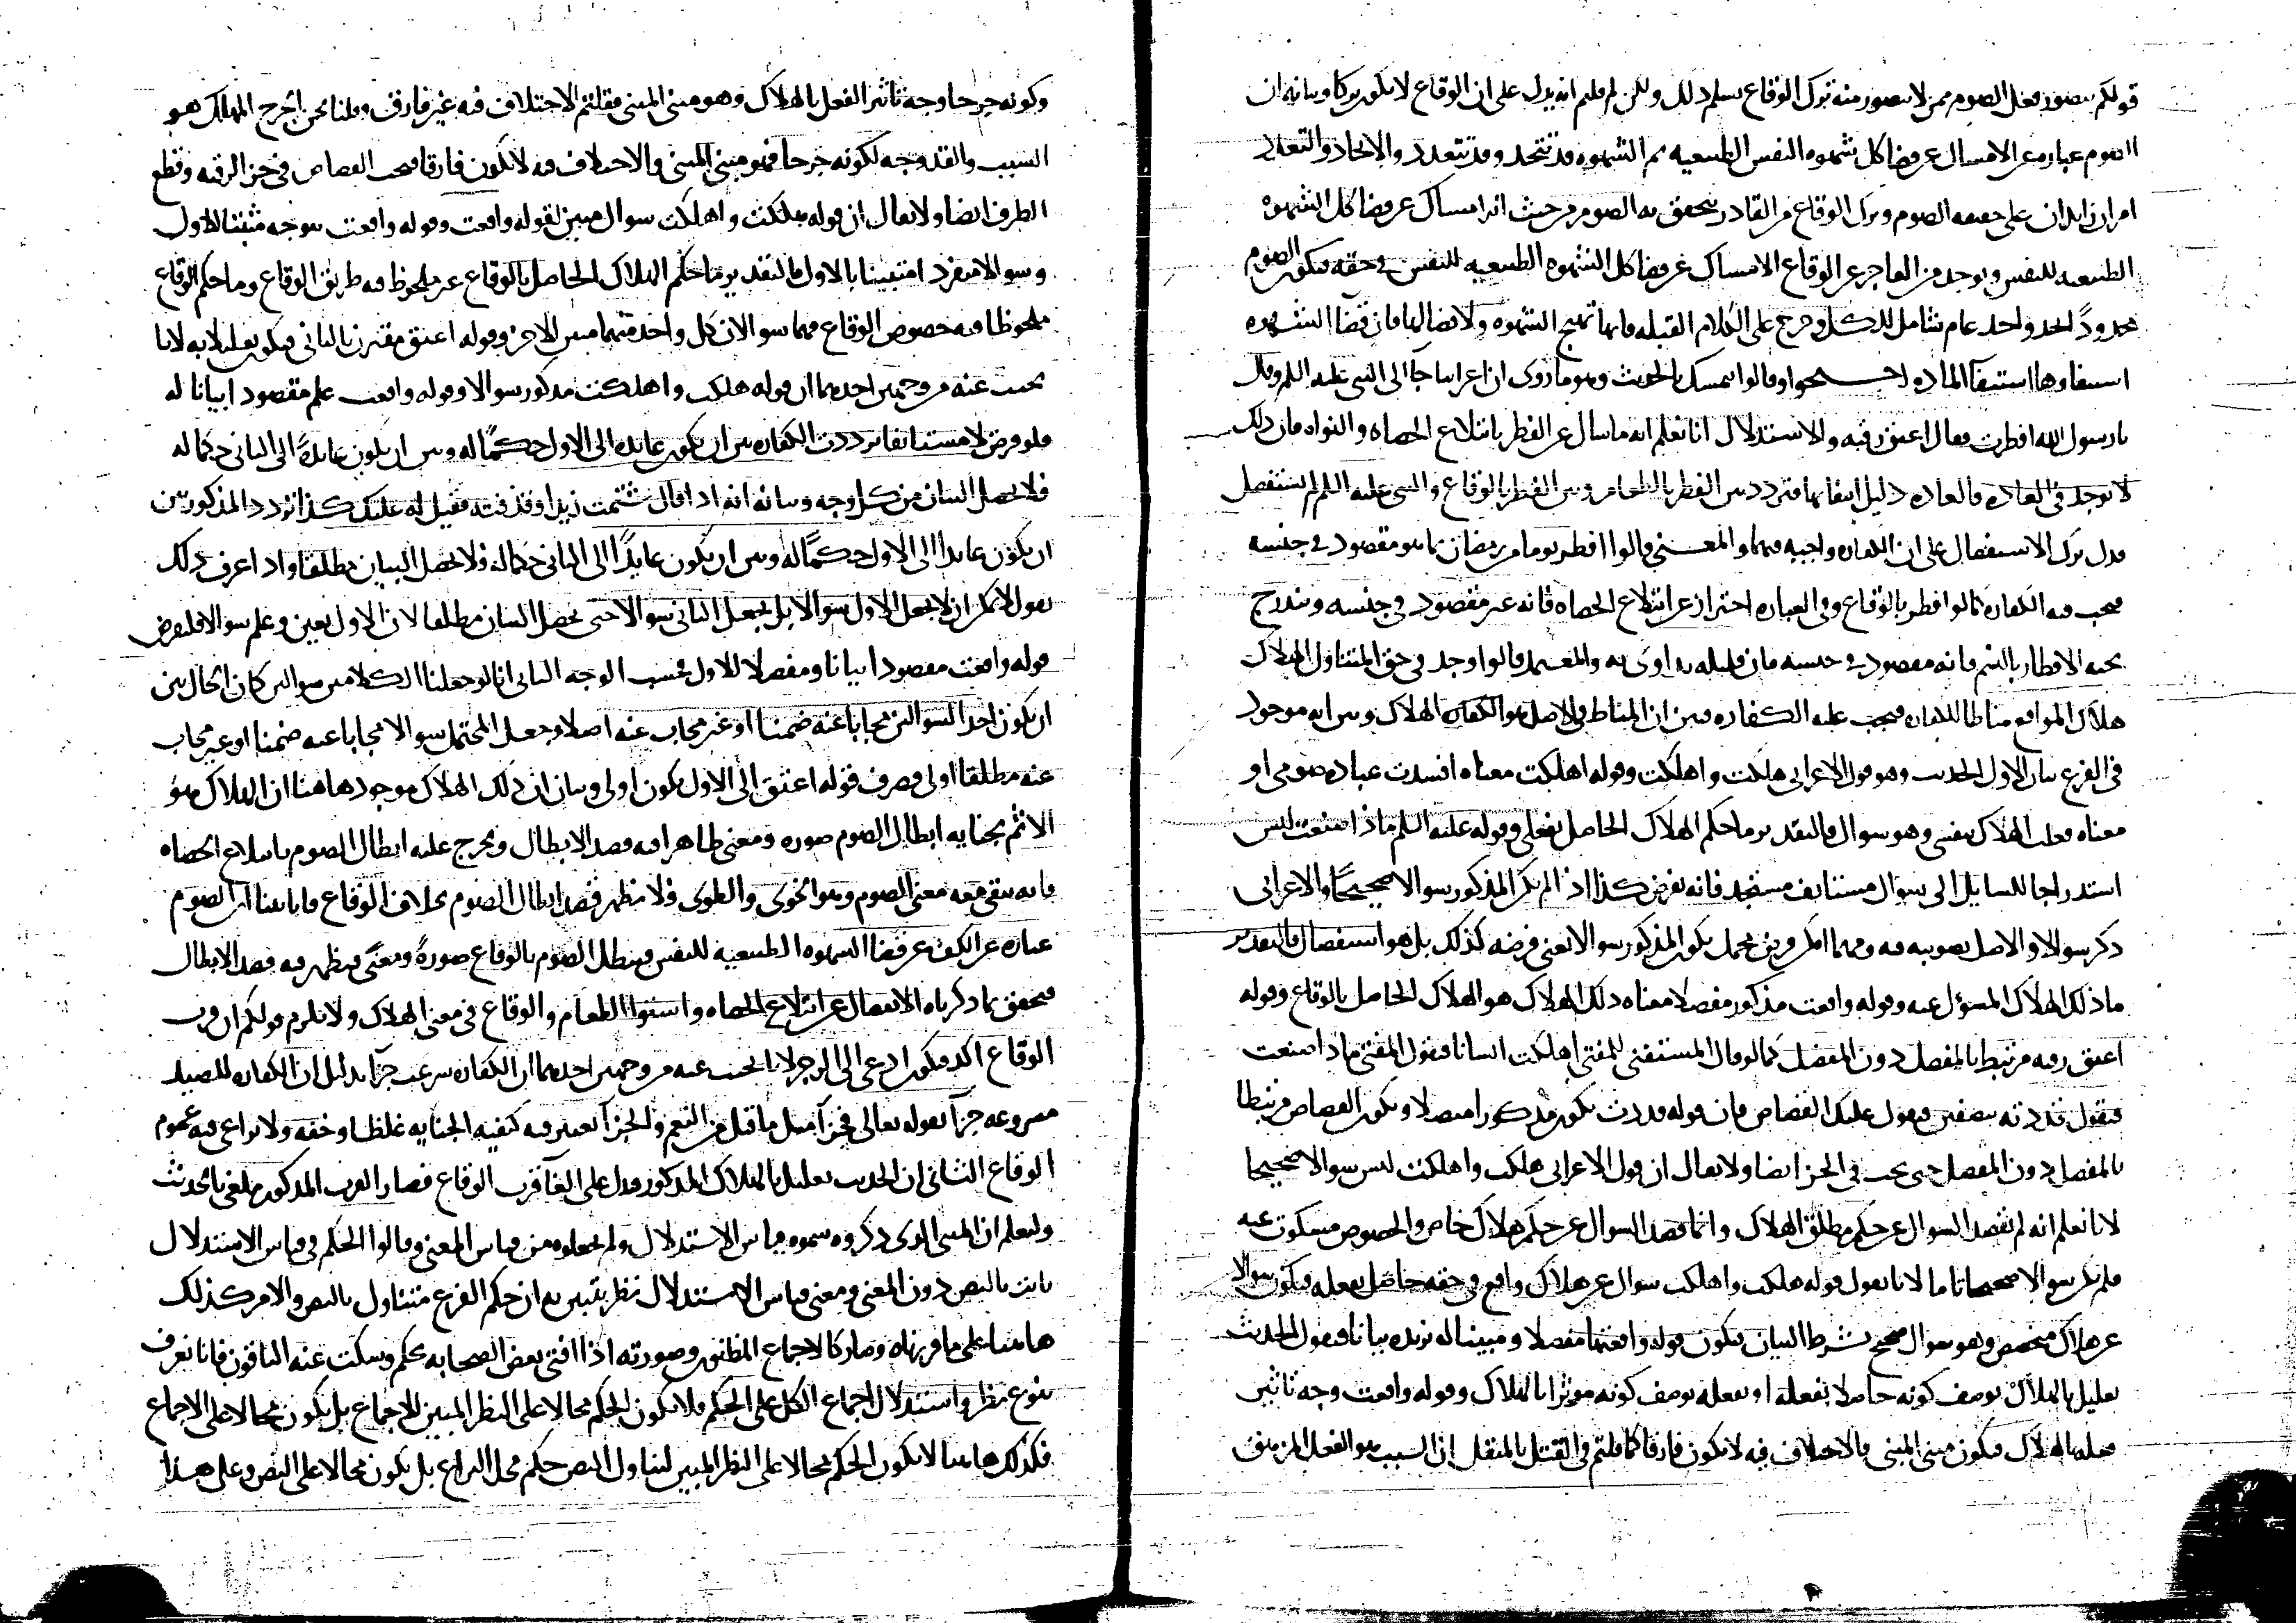 قولكم يتصور فعل الصوم ممن لا يتصور منه ترك الوقاع نسلم ذلك ولكن لم قلتم انه يدل على ان الوقاع لا يكون تركا وبيانه ان
الصوم عباره عن الامساك عن قضا كل شهوه النفس الطبيعيه ثم الشهوه قد تتحد وقد تتعدد والاتحاد والتعدد
امران زايدان على حقيقه الصوم وترك الوقاع من القادر يتحقق به الصوم من حيث انه امساك عن قضا كل الشهوه
الطبيعيه للنفس ويوجد من العاجز عن الوقاع الامساك عن قضا كل الشهوه الطبيعيه للنفس في حقه فيكون الصوم
محدودًا بحد واحد عام شامل للكل وخرج على الكلام القبله فانها تهيج الشهوه ولا قضا لها فان قضا الشهوه
استيفاوها استيفا الماده احتجوا وقالوا نتمسك بالحديث وهو ما روى ان اعرابيا جا الى النبي عليه السلم وقال
يا رسول الله افطرت فقال اعتق رقبه والاستدلال انا نعلم انه ما سال عن الفطر بابتلاع الحصاه والنواه فان ذلك
لا يوجد في العاده فالعاده دليل انتفايها فتردد بين الفطر بالطعام وبين الفطر بالوقاع والنبي عليه السلم لم يستفصل
فدل ترك الاستفصال على ان الكفاره واجبه فيهما والمعنى قالوا افطر يوما من رمضان بما هو مقصود في جنسه
فيجب فيه الكفاره كما لو افطر بالوقاع وفي العباره احتراز عن ابتلاع الحصاه فانه غير مقصود في جنسه ويندرج
تحته الافطار بالسم فانه مقصود في جنسه فان قليله يداوى به والمعتمد قالوا وجد في حق المتناول الهلاك
هلاك المواقع مناطا للكفاره فيجب عليه الكفاره فبين ان المناط في الاصل هو الهلاك وبين انه موجود
في الفرع بيان الاول الحديث وهو قول الاعرابي هلكت واهلكت وقوله اهلكت معناه افسدت عباده صومي او
معناه فعلت الهلاك بنفسي وهو سوال فالتقدير ما حكم الهلاك الحاصل بفعلي وقوله عليه السلم ماذا صنعت ليس
استدراجا للسايل الى سوال مستانف مستجد فانه يفرض كذا اذا لم يكن المذكور سوالا صحيحًا والاعرابي
ذكر سوالا والاصل تصويبه فيه ومهما امكن فرض محمل يكون المذكور سوالا تعين فرضه كذلك بل هو استفصال فالتقدير
ما ذلك الهلاك المسؤل عنه وقوله واقعت مذكور مفصلا معناه ذلك الهلاك هو الهلاك الحاصل بالوقاع وقوله
اعتق رقبه مرتبط بالمفصل دون المفصل كما لو قال المستفتي للمفتي اهلكت انسانا فيقول المفتي ماذا صنعت
فيقول قددته بنصفين فيقول عليك القصاص فان قوله قددت يكون مذكورا مفصلا ويكون القصاص مرتبطا
بالمفصل دون المفصل حتى يجب في الحز ايضا ولا يقال ان قول الاعرابي هلكت واهلكت ليس سوالا صحيحا
لانا نعلم انه لم يقصد السوال عن حكم مطلق الهلاك وانما قصد السوال عن حكم هلاك خاص والخصوص مسكوت عنه
فلم يكن سوالا صحيحا تاما لانا نقول قوله هلكت واهلكت سوال عن هلاك واقع في حقه حاصل بفعله فيكون سوالا
عن هلاك مخصص وهو سوال صحيح بشرط البيان فيكون قوله واقعتها مفصلا ومبينا له نزيده بيانا فيقول الحديث
تعليل بالهلاك بوصف كونه حاصلا بفعله او بفعله بوصف كونه موثرا بالهلاك وقوله واقعت وجه تاثير
فعله بالهلاك فيكون مبنى المبنى فالاختلاف فيه لا يكون فارقا كما قلتم في القتل بالمثقل ان السبب هو الفعل المزهق
وكونه جرحا وجه تاثير الفعل بالهلاك وهو مبنى المبنى فقلتم الاختلاف فيه غير فارق وقلنا نحن الجرح المهلك هو
السبب والقد وجه لكونه جرحا فهو مبنى المبنى فالاختلاف فيه لا يكون فارقا فيجب القصاص في حز الرقبه وقطع
الطرف ايضا ولا يقال ان قوله هلكت واهلكت سوال مبين لقوله واقعت وقوله واقعت بوجه مثبتا للاول
وسوالا منفردا متبينا بالاول فالتقدير ما حكم الهلاك الحاصل بالوقاع غير ملحوظ فيه طريق الوقاع وما حكم الوقاع
ملحوظا فيه خصوص الوقاع فهما سوالان كل واحد منهما مبين للاخر وقوله اعتق مقترن بالثاني فيكون تعليلا به لانا
نجيب عنه من وجهين احدهما ان قوله هلكت واهلكت مذكور سوالا وقوله واقعت علم مقصودا بيانا له
فلو فرض لا مستانفا ترددت الكفاره بين ان يكون عايده الى الاول حكمًا له وبين ان يكون عايدةً الى الثاني حكما له
فلا يحصل البيان من كل وجه وبيانه انه اذا قال شتمت زيدا وقذفته فقيل له عليك كذا تردد المذكور بين
ان يكون عايدا الى الاول حكمًا له وبين ان يكون عايدًا الى الثاني حكما له فلا يحصل البيان مطلقا واذا عرف ذلك
نقول لا يمكن ان لا يجعل الاول سوالا بل يجعل الثاني سوالا حتى يحصل البيان مطلقا لان الاول تعين وعلم سوالا فليفرض
قوله واقعت مقصودا بيانا ومفصلا للاول فحسب الوجه الثاني انا لو جعلنا الكلامين سوالين كان الحال بين
ان يكون احد السوالين مجابا عنه ضمنا او غير مجاب عنه اصلا وجعل المحتمل سوالا مجابا عنه ضمنا او غير مجاب
عنه مطلقا اولى فصرف قوله اعتق الى الاول يكون اولى وبيان ان ذلك الهلاك موجود هاهنا ان الهلاك هو
الاثم بجنايه ابطال الصوم صوره ومعنى ظاهرا فيه قصد الابطال وخرج عليه ابطال الصوم بابتلاع الحصاه
فانه يبقى معه معنى الصوم وهو الخوى والطوى فلا يظهر قصد ابطال الصوم بخلاف الوقاع فانا بينا ان الصوم
عباره عن الكف عن قضا الشهوه الطبيعيه للنفس فيبطل الصوم بالوقاع صورةً ومعنًى فيظهر فيه قصد الابطال
فتحقق بما ذكرناه الانفصال عن ابتلاع الحصاه واستوا الطعام والوقاع في معنى الهلاك ولا يلزم قولكم ان
الوقاع اكد فيكون ادعى الى الزجر لانا نجيب عنه من وجهين احدهما ان الكفاره شرعت جزا بدليل ان الكفاره للصيد
مشروعه جزا بقوله تعالى فجزآ مثل ما قتل من النعم والجزآ يعتبر فيه كيفيه الجنايه غلظا وخفه ولا يراعى فيه عموم
الوقاع الثاني ان الحديث تعليل بالهلاك المذكور فدل على الغآ قرب الوقاع فصار القرب المذكور ملغى بالحديث
وليعلم ان المعنى الذي ذكروه سموه قياس الاستدلال ولم يجعلوه من قياس المعنى وقالوا الحكم في قياس الاستدلال
ثابت بالنص دون المعنى ومعنى قياس الاستدلال نظر يتبين به ان حكم الفرع متناول بالنص والامر كذلك
هاهنا على ما قررناه وصار كالاجماع المظنون وصورته اذا افتى بعض الصحابه بحكم وسكت عنه الباقون فانا نعرف
بنوع نظر واستدلال اجماع الكل على الحكم فلا يكون الحكم محالا على النظر المبين للاجماع بل يكون محالا على الاجماع
فكذلك هاهنا لا يكون الحكم محالا على النظر المبين لتناول النص حكم محل النزاع بل يكون محالا على النص وعلى هذا